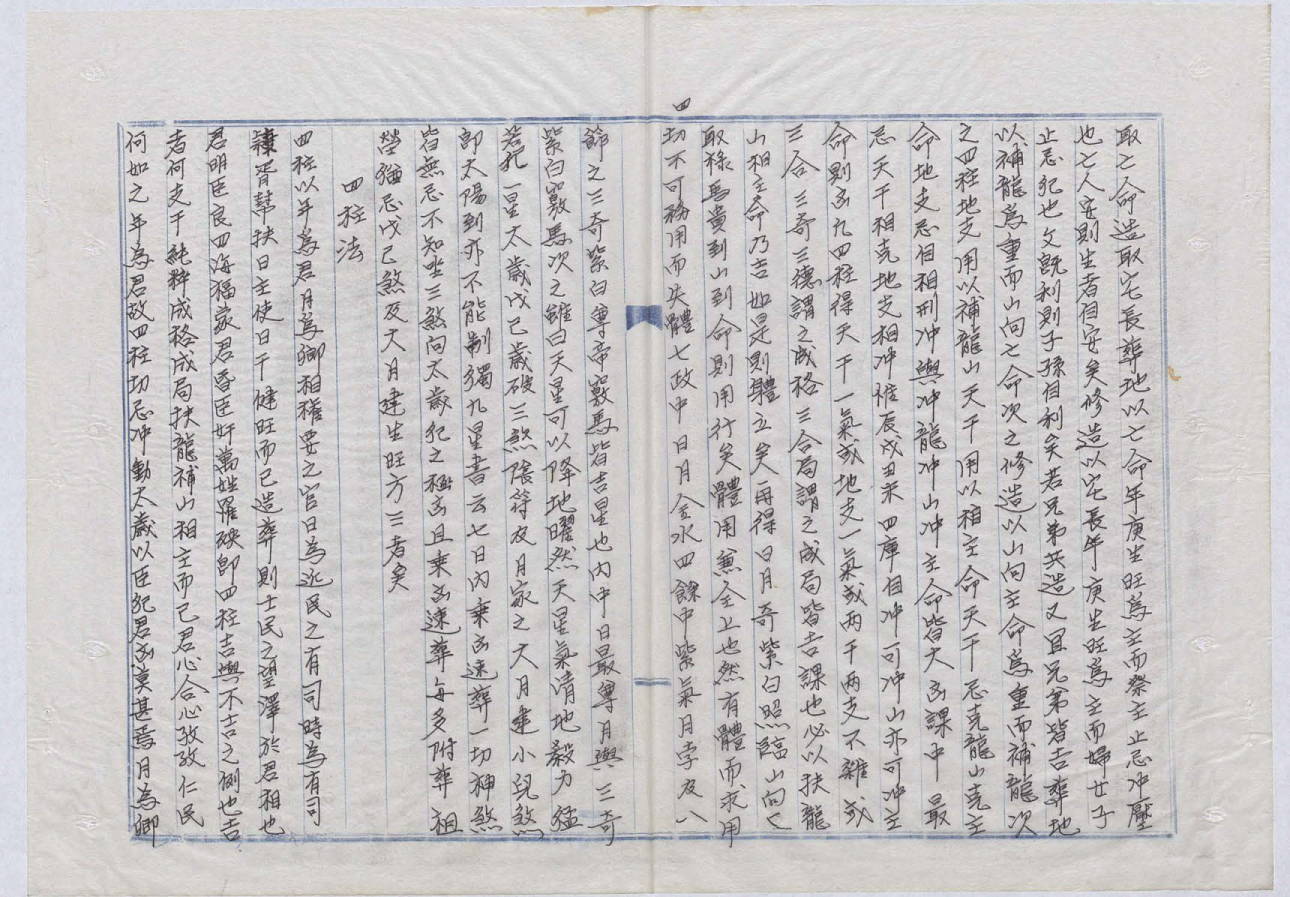 取之命造取宅長葬地以亡命年庚生旺為主而祭主止忌冲壓
也亡人安則生者自安矣修造以宅長年庚生旺為主而婦女子
止忌犯也父旣利則子孫自利矣若兄弟共造又宜兄弟皆吉葬地
以補龍為重而山向亡命次之修造以山向主命為重而補龍次
之四柱地支用以補龍山天干用以相主命天干忌克龍山克主
命地支忌自相刑冲與冲龍冲山冲主命皆大凶課中最
忌天干相克地支相冲惟辰戌丑未四庫自冲可冲山亦可冲主
命則凶凡四柱得天干一氣或地支一氣或两干两支不雜或
三合三奇三德謂之成格三合局謂之成局皆吉課也必以扶龍
山相主命乃吉如是則體立矣再得日月奇紫白照臨山向七
取祿馬貴到山到命則用行矣體用兼全上也然有體而求用
四
切不可務用而失體七政中日月金水四餘中紫氣月孛及八
節之三奇紫白尊帝竅馬皆吉星也內中日最尊月與三奇
紫白竅馬次之雖曰天星可以降地曜然天星氣清地殺力猛
若犯一星太歲戊己歲破三煞陰符及月家之大月建小兒煞
即太陽到亦不能制獨九星書云七日內乗凶速葬一切神煞
皆無忌不知坐三煞向太歲犯之極凶且乗凶速葬每多附葬祖
塋猶忌戊己煞及大月建生旺方三者矣
四柱法
四柱以年為君月為卿相權要之官日為民之有司時為有司
隸胥幇扶日主使日干健旺而已造葬則士民之望澤於君相也
君明臣良四海福家君昏臣奸萬姓罹殃即四柱吉與不吉之例也吉
者何支干純粹成格成局扶龍補山相主而已君心合心孜孜仁民
何如之年為君故四柱切忌冲動太歲以臣犯君凶莫甚焉月為卿